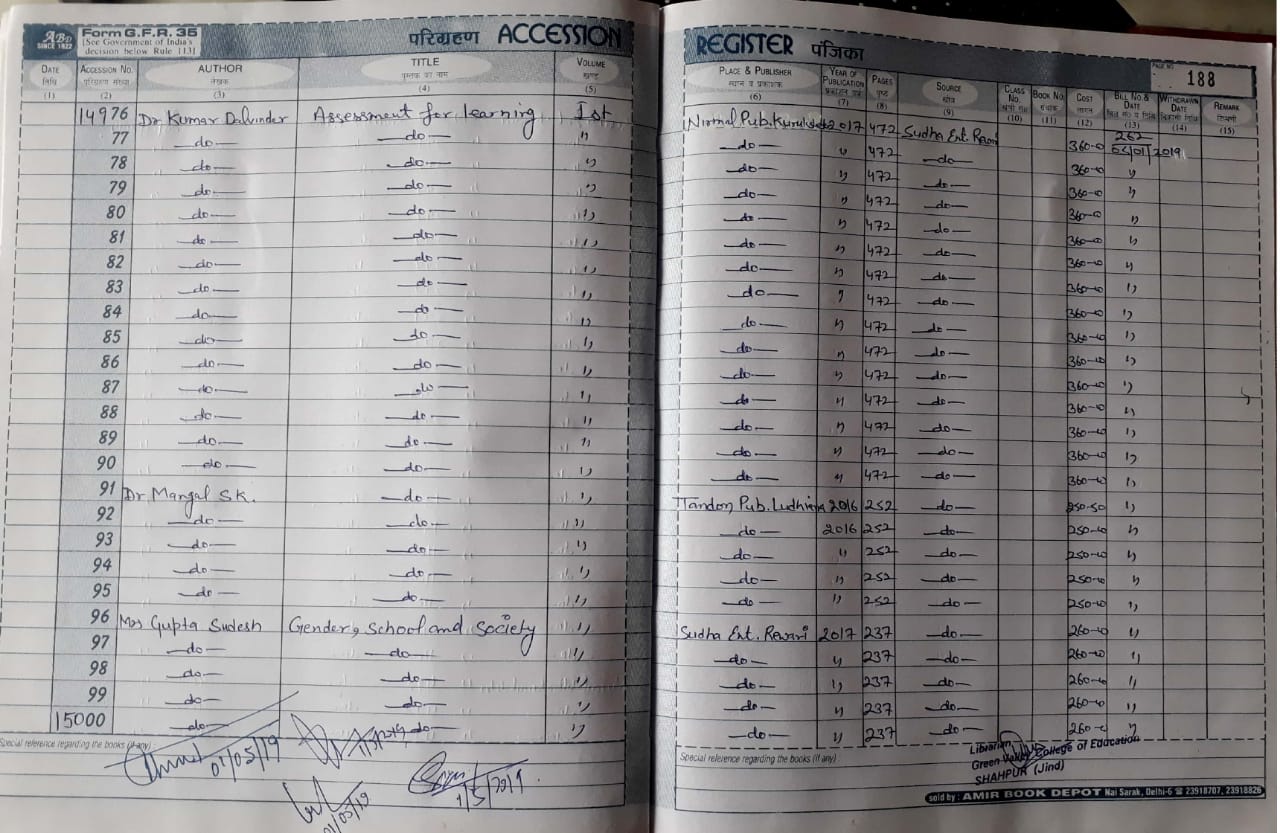 ABD
SINCE 1822
Form G.F.R. 35
[See Government of India's
decision below Rule 113]
परिग्रहण ACCESSION
DATE तिथि (1) ACCESSION No. परिग्रहण संख्या (2) AUTHOR लेखक (3) TITLE पुस्तक का नाम (4) VOLUME खण्ड (5)
14976 Dr Kumar Dalvinder Assessment for learning Ist
77 —do— —do— "
78 —do— —do— "
79 —do— —do— "
80 —do— —do— "
81 —do— —do— "
82 —do— —do— "
83 —do— —do— "
84 —do— —do— "
85 —do— —do— "
86 —do— —do— "
87 —do— —do— "
88 —do— —do— "
89 —do— —do— "
90 —do— —do— "
91 Dr Mangal S.K. —do— "
92 —do— —do— "
93 —do— —do— "
94 —do— —do— "
95 —do— —do— "
96 Mrs Gupta Sudesh Gender, School and Society "
97 —do— —do— "
98 —do— —do— "
99 —do— —do— "
15000 —do— —do— "
Special reference regarding the books (if any)
01/05/19
1/5/2019
01/05/19
1/5/2019
REGISTER पंजिका
PAGE NO. 188
PLACE & PUBLISHER स्थान व प्रकाशक (6) YEAR OF PUBLICATION प्रकाशन वर्ष (7) PAGES पृष्ठ (8) SOURCE स्रोत (9) CLASS No. (10) BOOK No. (11) COST लागत (12) BILL No. & DATE बिल सं० व तिथि (13) WITHDRAWN DATE (14) REMARK टिप्पणी (15)
Nirmal Pub. 2017 472 Sudha Ent. Rewari 360-00 262 05/01/2019
—do— " 472 —do— 360-00 "
—do— " 472 —do— 360-00 "
—do— " 472 —do— 360-00 "
—do— " 472 —do— 360-00 "
—do— " 472 —do— 360-00 "
—do— " 472 —do— 360-00 "
—do— " 472 —do— 360-00 "
—do— " 472 —do— 360-00 "
—do— " 472 —do— 360-00 "
—do— " 472 —do— 360-00 "
—do— " 472 —do— 360-00 "
—do— " 472 —do— 360-00 "
—do— " 472 —do— 360-00 "
—do— " 472 —do— 360-00 "
Tandon Pub. Ludhiana 2016 252 —do— 250-00 "
—do— 2016 252 —do— 250-00 "
—do— " 252 —do— 250-00 "
—do— " 252 —do— 250-00 "
—do— " 252 —do— 250-00 "
Sudha Ent. Rewari 2017 237 —do— 260-00 "
—do— " 237 —do— 260-00 "
—do— " 237 —do— 260-00 "
—do— " 237 —do— 260-00 "
—do— " 237 —do— 260-00 "
Special reference regarding the books (if any)
Librarian
Green Valley College of Education
SHAHPUR (Jind)
sold by : AMIR BOOK DEPOT Nai Sarak, Delhi-6 ☎ 23918707, 23918826